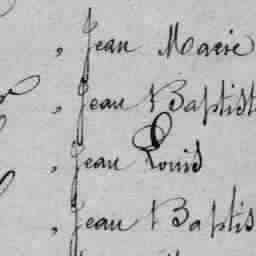 , Jean Marie
, Jean Baptist
, Jean Louis
, Jean Baptis